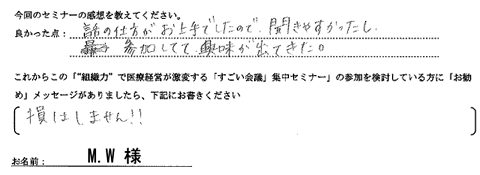 今回のセミナーの感想を教えてください。
良かった点： 話の仕方がお上手でしたので、聞きやすかったし、
参加してて興味が出てきた。
これからこの「"組織力"で医療経営が激変する「すごい会議」集中セミナー」の参加を検討している方に「お勧
め」メッセージがありましたら、下記にお書きください
損はしません!!
お名前： M.W 様